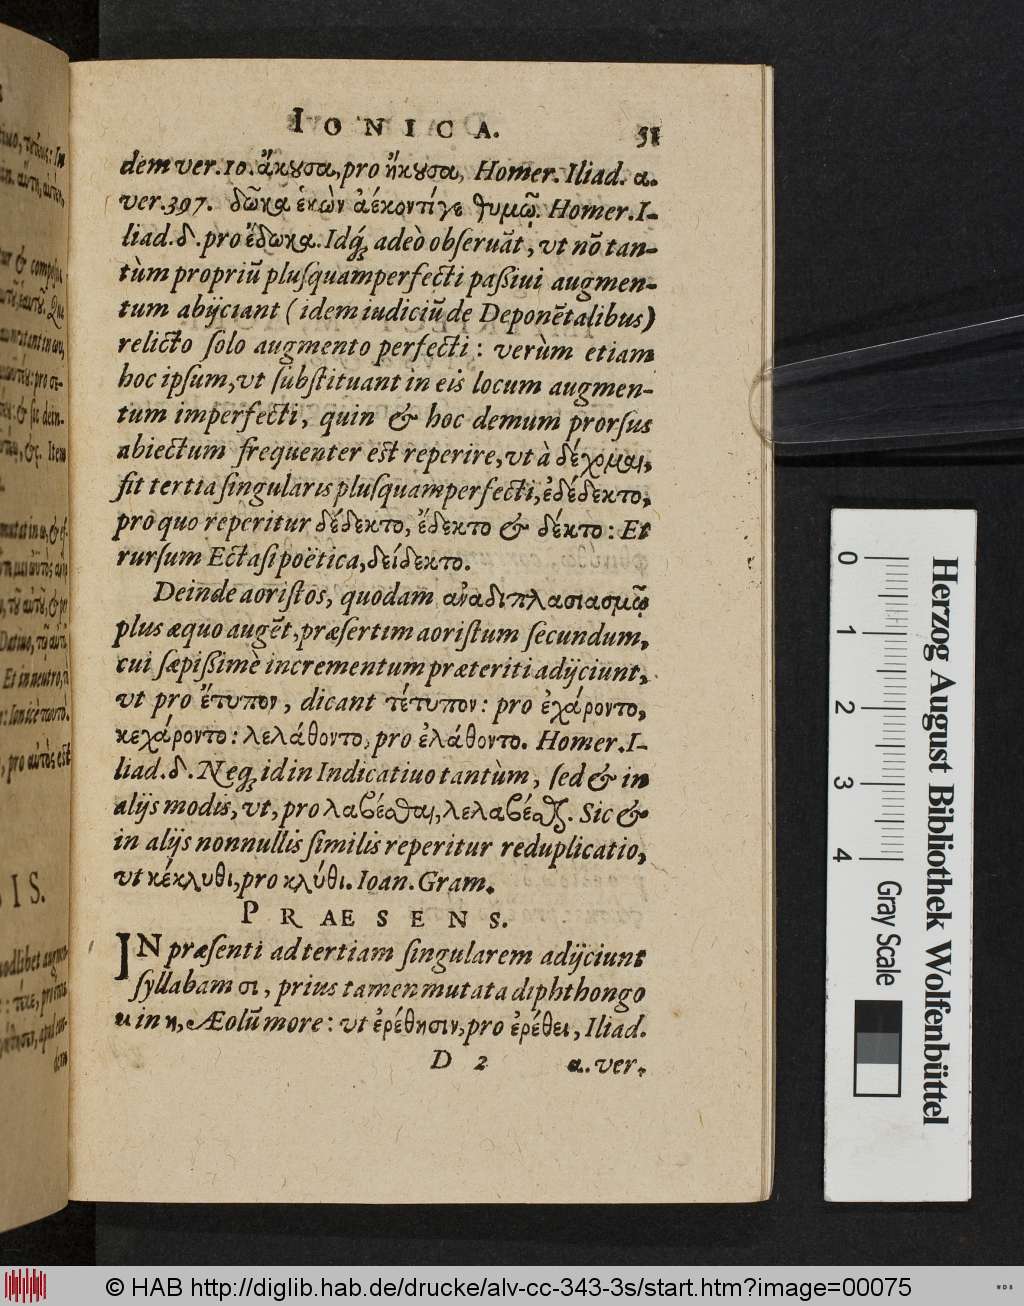 IONICA. 51
dem ver.10. ἄκουσα, pro ἤκουσα, Homer. Iliad. α.
ver.397. δῶκα ἑκὼν ἀέκοντίγε θυμῷ. Homer. I-
liad. δ. pro ἔδωκα. Idq́; adeò obſeruãt, vt nõ tan-
tùm propriũ pluſquamperfecti paßiui augmen-
tum abijciant (idem iudiciũ de Deponẽtalibus)
relicto ſolo augmento perfecti: verùm etiam
hoc ipſum, vt ſubſtituant in eis locum augmen-
tum imperfecti, quin & hoc demum prorſus
abiectum frequenter eſt reperire, vt à δέχομαι,
fit tertia ſingularis pluſquamperfecti, ἐδέδεκτο,
pro quo reperitur δέδεκτο, ἔδεκτο & δέκτο: Et
rurſum Ectaſi poëtica, δείδεκτο.
Deinde aoriſtos, quodam ἀναδιπλασιασμῷ
plus æquo augẽt, præſertim aoriſtum ſecundum,
cui ſæpißimè incrementum præteriti adijciunt,
vt pro ἔτυπον, dicant τέτυπον: pro ἐχάροντο,
κεχάροντο: λελάθοντο, pro ἐλάθοντο. Homer. I-
liad. δ. Neq; id in Indicatiuo tantùm, ſed & in
alijs modis, vt, pro λαβέσθαι, λελαβέσθαι. Sic &
in alijs nonnullis ſimilis reperitur reduplicatio,
vt κέκλυθι, pro κλύθι. Ioan. Gram.
PRAESENS.
IN præſenti ad tertiam ſingularem adijciunt
ſyllabam σι, prius tamen mutata diphthongo
ει in η, Æolũ more: vt ἐρέθησιν, pro ἐρέθει, Iliad.
D 2 α. ver.
0 1 2 3 4
Gray Scale
Herzog August Bibliothek Wolfenbüttel
© HAB http://diglib.hab.de/drucke/alv-cc-343-3s/start.htm?image=00075